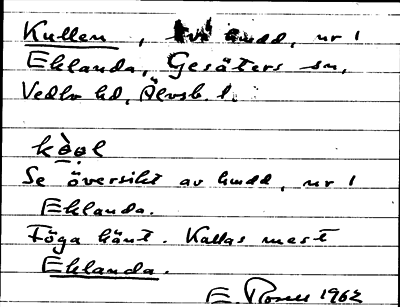 Kullen, hmd, nr 1
Eklanda, Gesäters sn,
Vedbo hd, Älvsb. l.
Se översikt av hmd, nr 1
Eklanda.
Föga känt. Kallas mest
Eklanda.
E. 1962